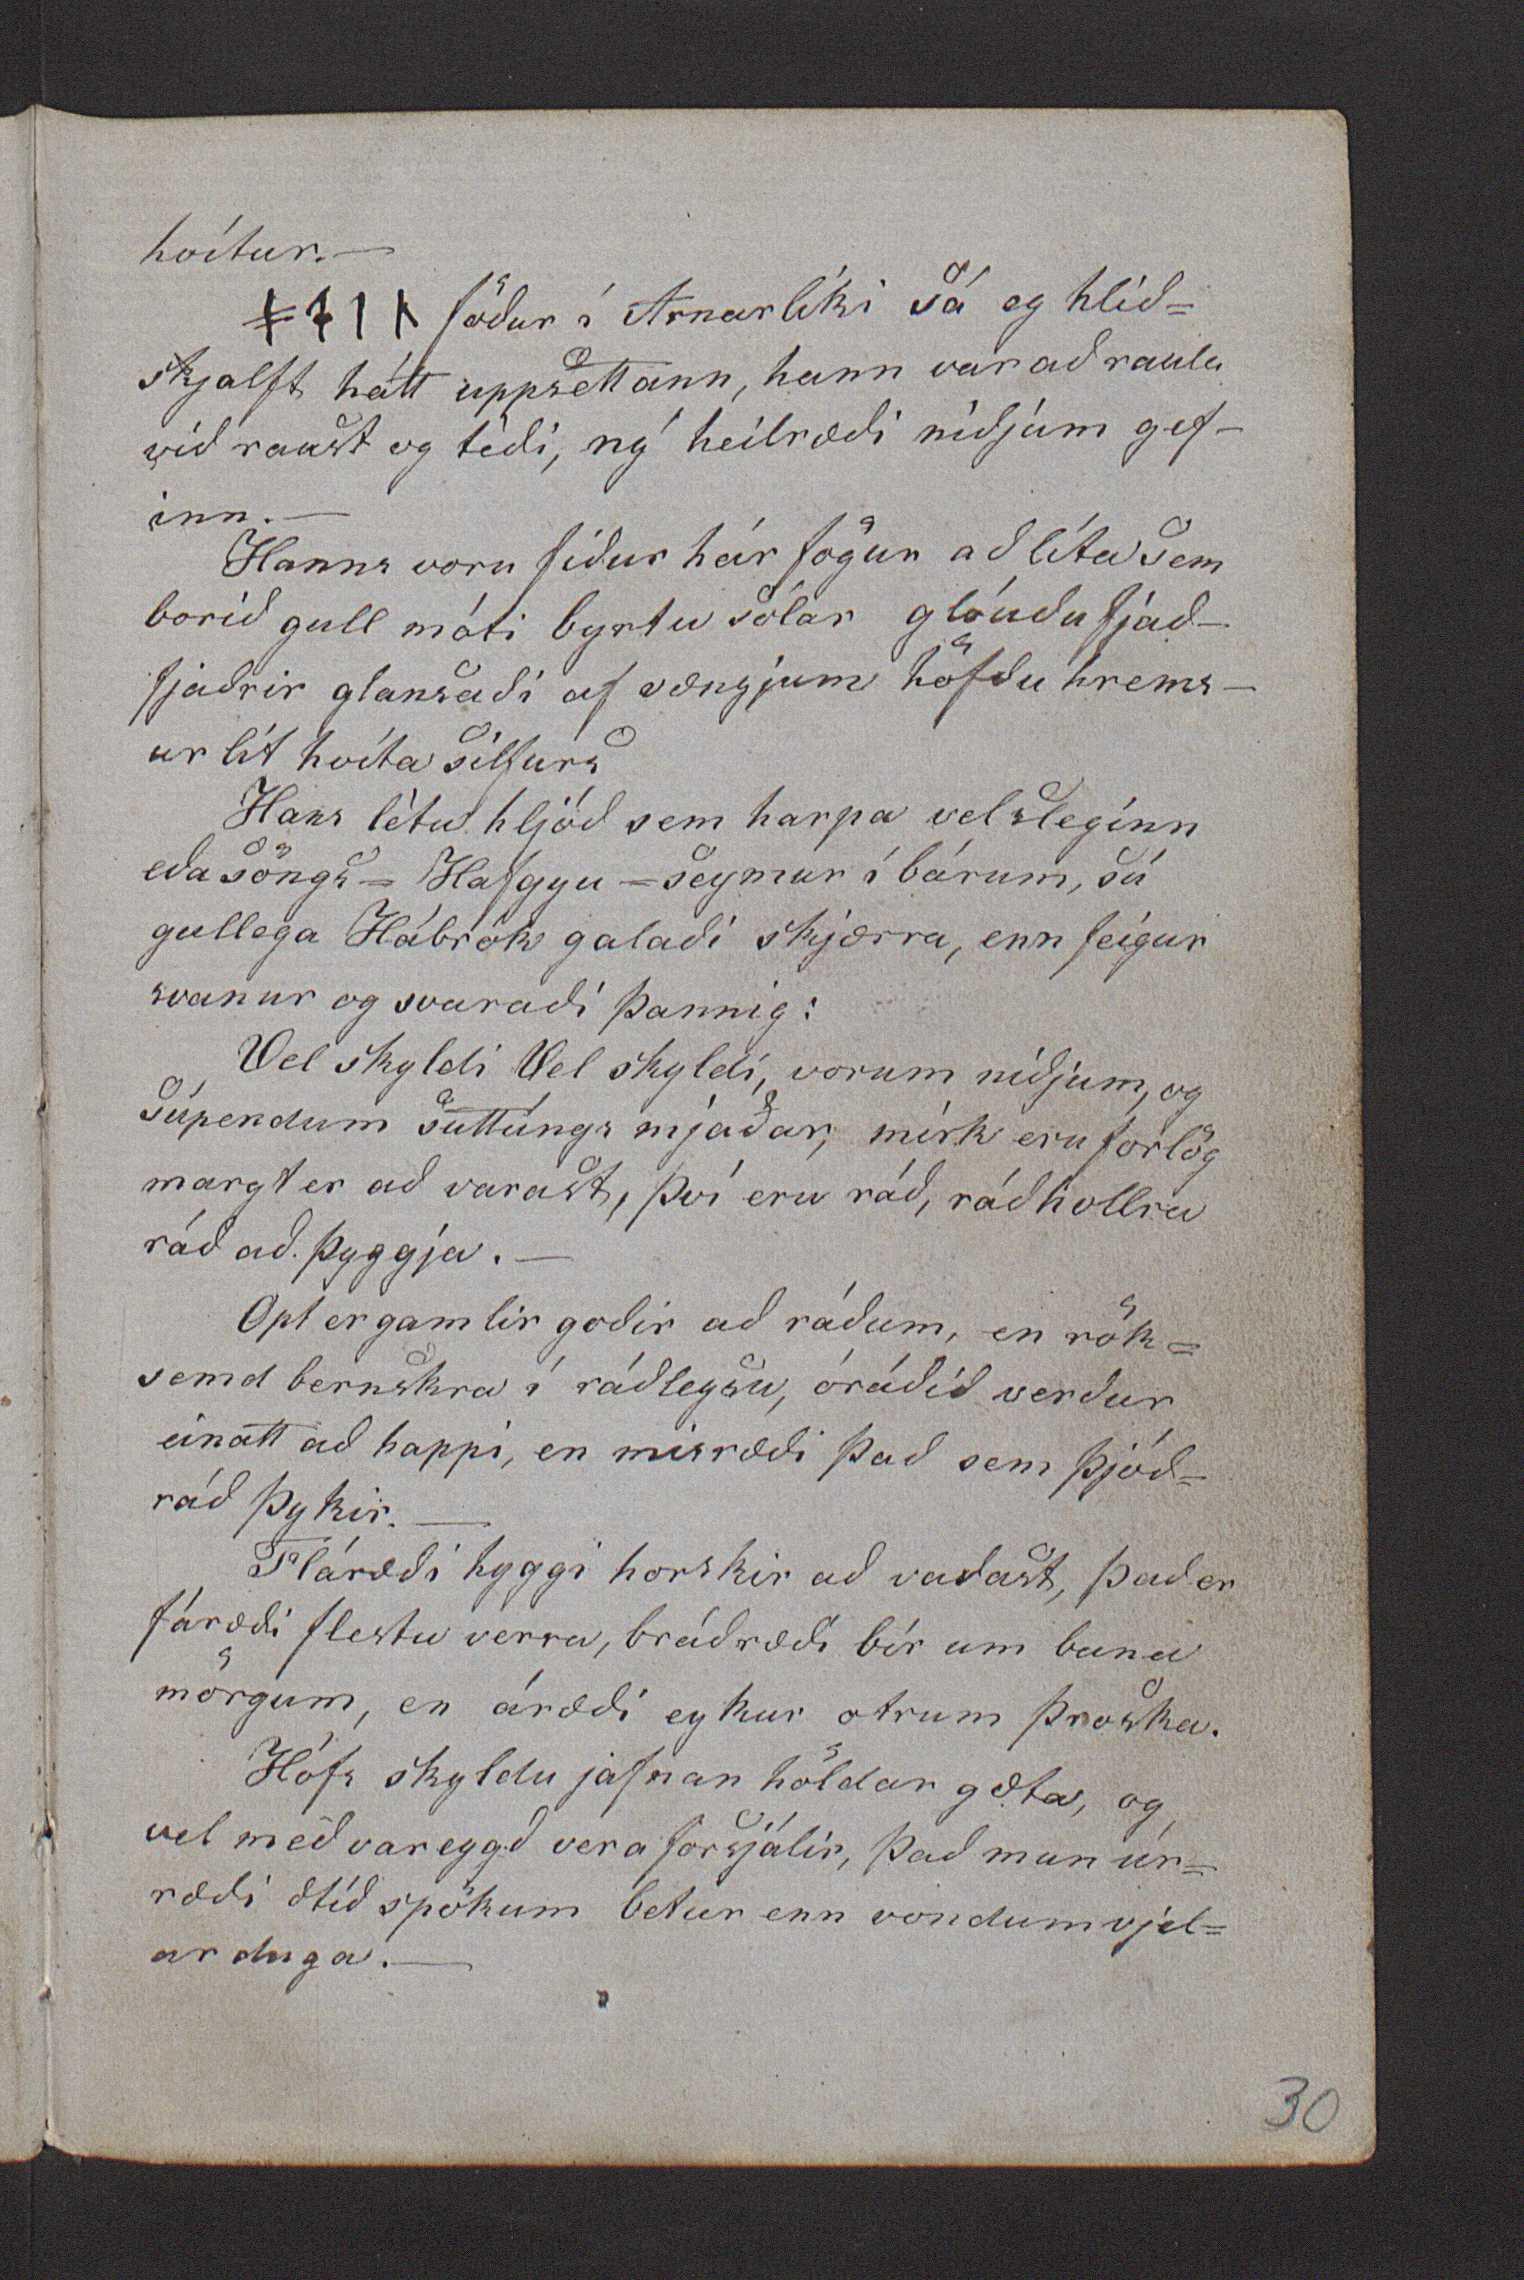 hvítur. —
ᚼᛆᛁᚿ föður í Arnarlíki sá eg hlíð=
skjalft hátt uppsettann, hann var að raula
við raust og téði, ný heilræði niðjúm gef-
inn. —
Hanns voru fiður hár fögur að líta sem
borið gull móti byrtu sólar glóuðu fjað-
fjaðrir glansaði af vængjum höfðu hrems-
ur lit hvíta silfurs
Hans létu hljóð sem harpa velsleginn
eða söngs = Hafgyu = seymur í bárum, sú
gullega Hábrók galaði skjærra, enn feigur
svanur og svaraði þannig:
Vel skyldi Vel skyldi, vorum niðjum, og
súpendum suttúngs mjaðar, mirk eru forlög
margt er að varast, því eru ráð, ráðhollra
ráð að þyggja. —
Opt er gamlir goðir að ráðum, en rök=
semd bernskra í ráðleysu, óráðið verður
einatt að happi, en misræði það sem þjóð-
ráð þykir. —
Fláræði hyggi horskir að vaðast, það er
fáræði flestu verra, bráðræði bír um bana
mörgum, en áræði eykur otrum þroska.
Hófs skyldu jafnan höldar gæta, og
vel með vareygð vera forsjálir, það mun úr=
ræði ætíð spökum betur enn vondum vjel=
ar duga. —
30